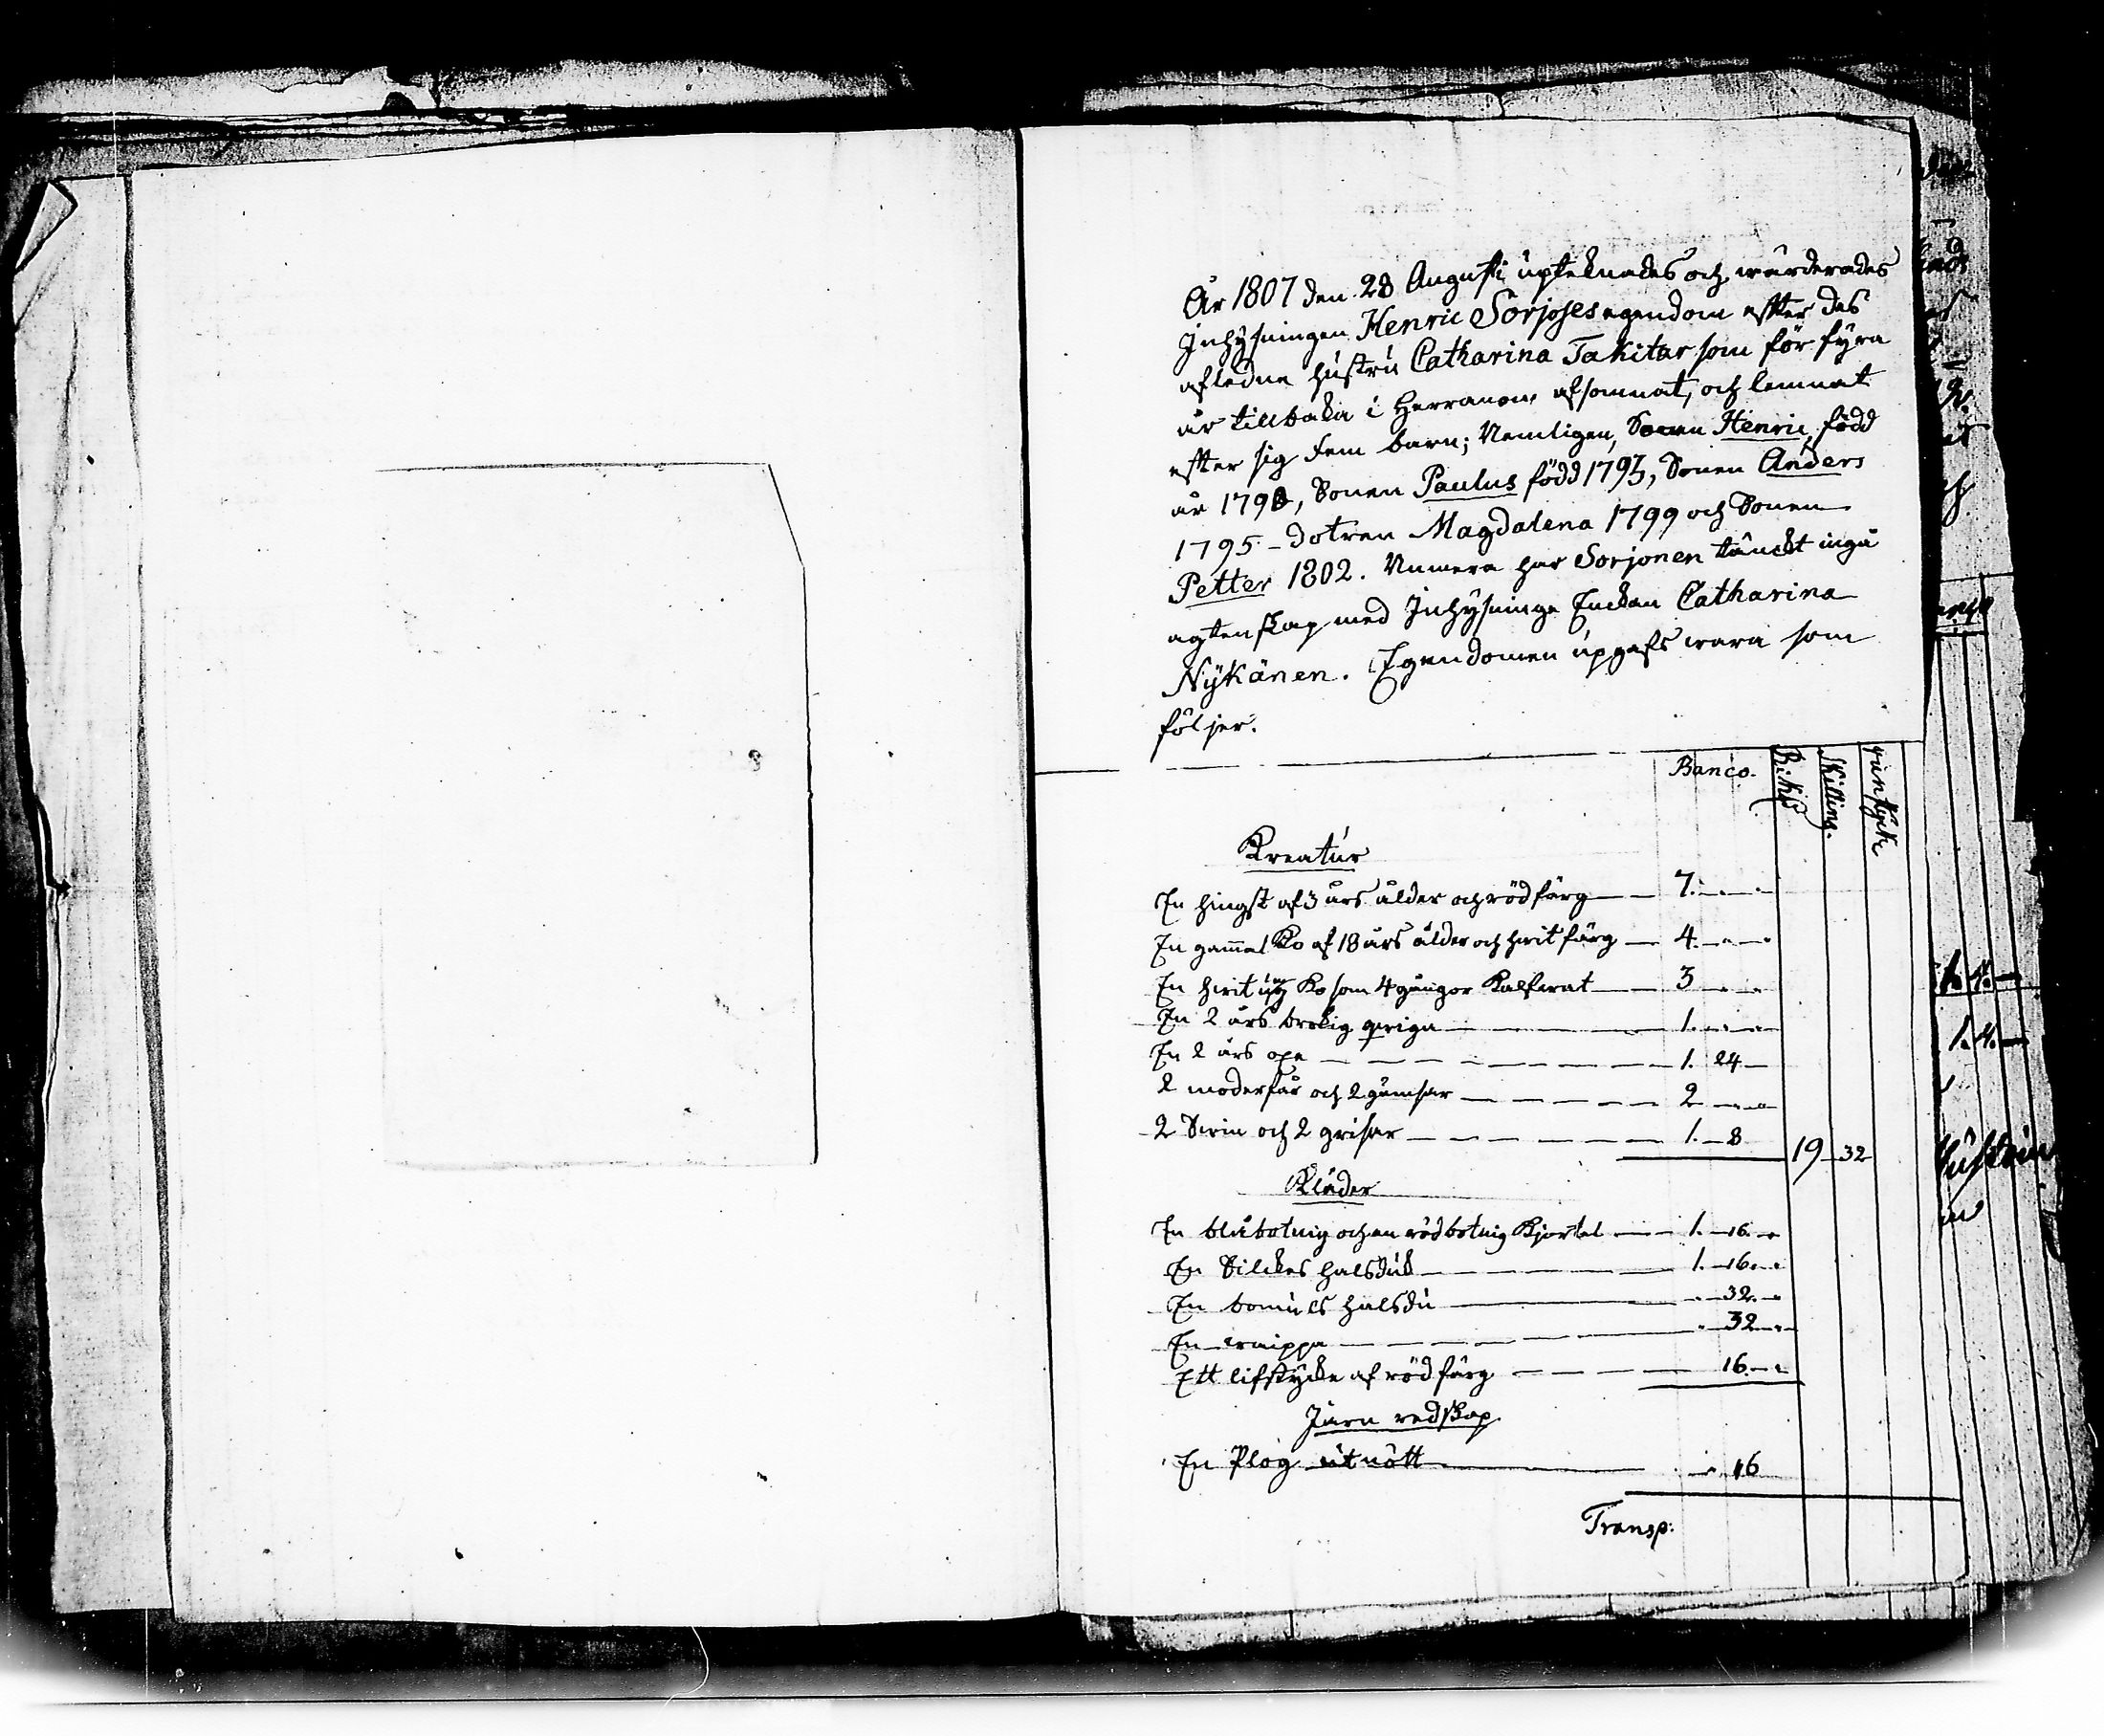 År 1807 den 28 Augusti úpteknades och wärderades
Jnhysningen Henric Sorjoses egendom effter des
afledne hústrú Catharina Takitar som för fÿra
år tillbaka i Herranom afsomnat, och lemnat
effter sig fem barn; Nemligen, Sonen Henric, född
år 1790, Sonen Paulus född 1793, Sonen Anders
1795 - dotren Magdalena 1799 och Sonen
Petter 1802. Numera har Sorjonen tänckt ingå
agtenskap med Jnhysninge Enckan Catharina
Nÿkänen. Egendomen úpgafs wara som
följer.
Banco. Riksd Skilling. rúnstycke
Kreatúr
En hingst af 3 års ålder och röd färg — 7. " "
En gammal Ko af 18 års ålder och hwit färg — 4. " "
En hwit úng Ko som 4 gångor Kalfwat — 3 " "
En 2 års brokig qwiga — 1. " "
En 2 års oxe — 1. 24 —
2 moderfår och 2 gúmsar — 2 " "
2 Swin och 2 grisar — 1. — 8 19 — 32
Kläder
En blåbotnig och en rödbotnig Kjortel — 1. — 16. "
En Silckes halsdúk — 1. — 16. "
En bomúls halsdú — " — 32. "
En — " — 32 "
Ett lifstycke af röd färg — 16. "
Järn redskap
En Plog útnött — " 16
Transp:
1. 4. —
1. 4. —